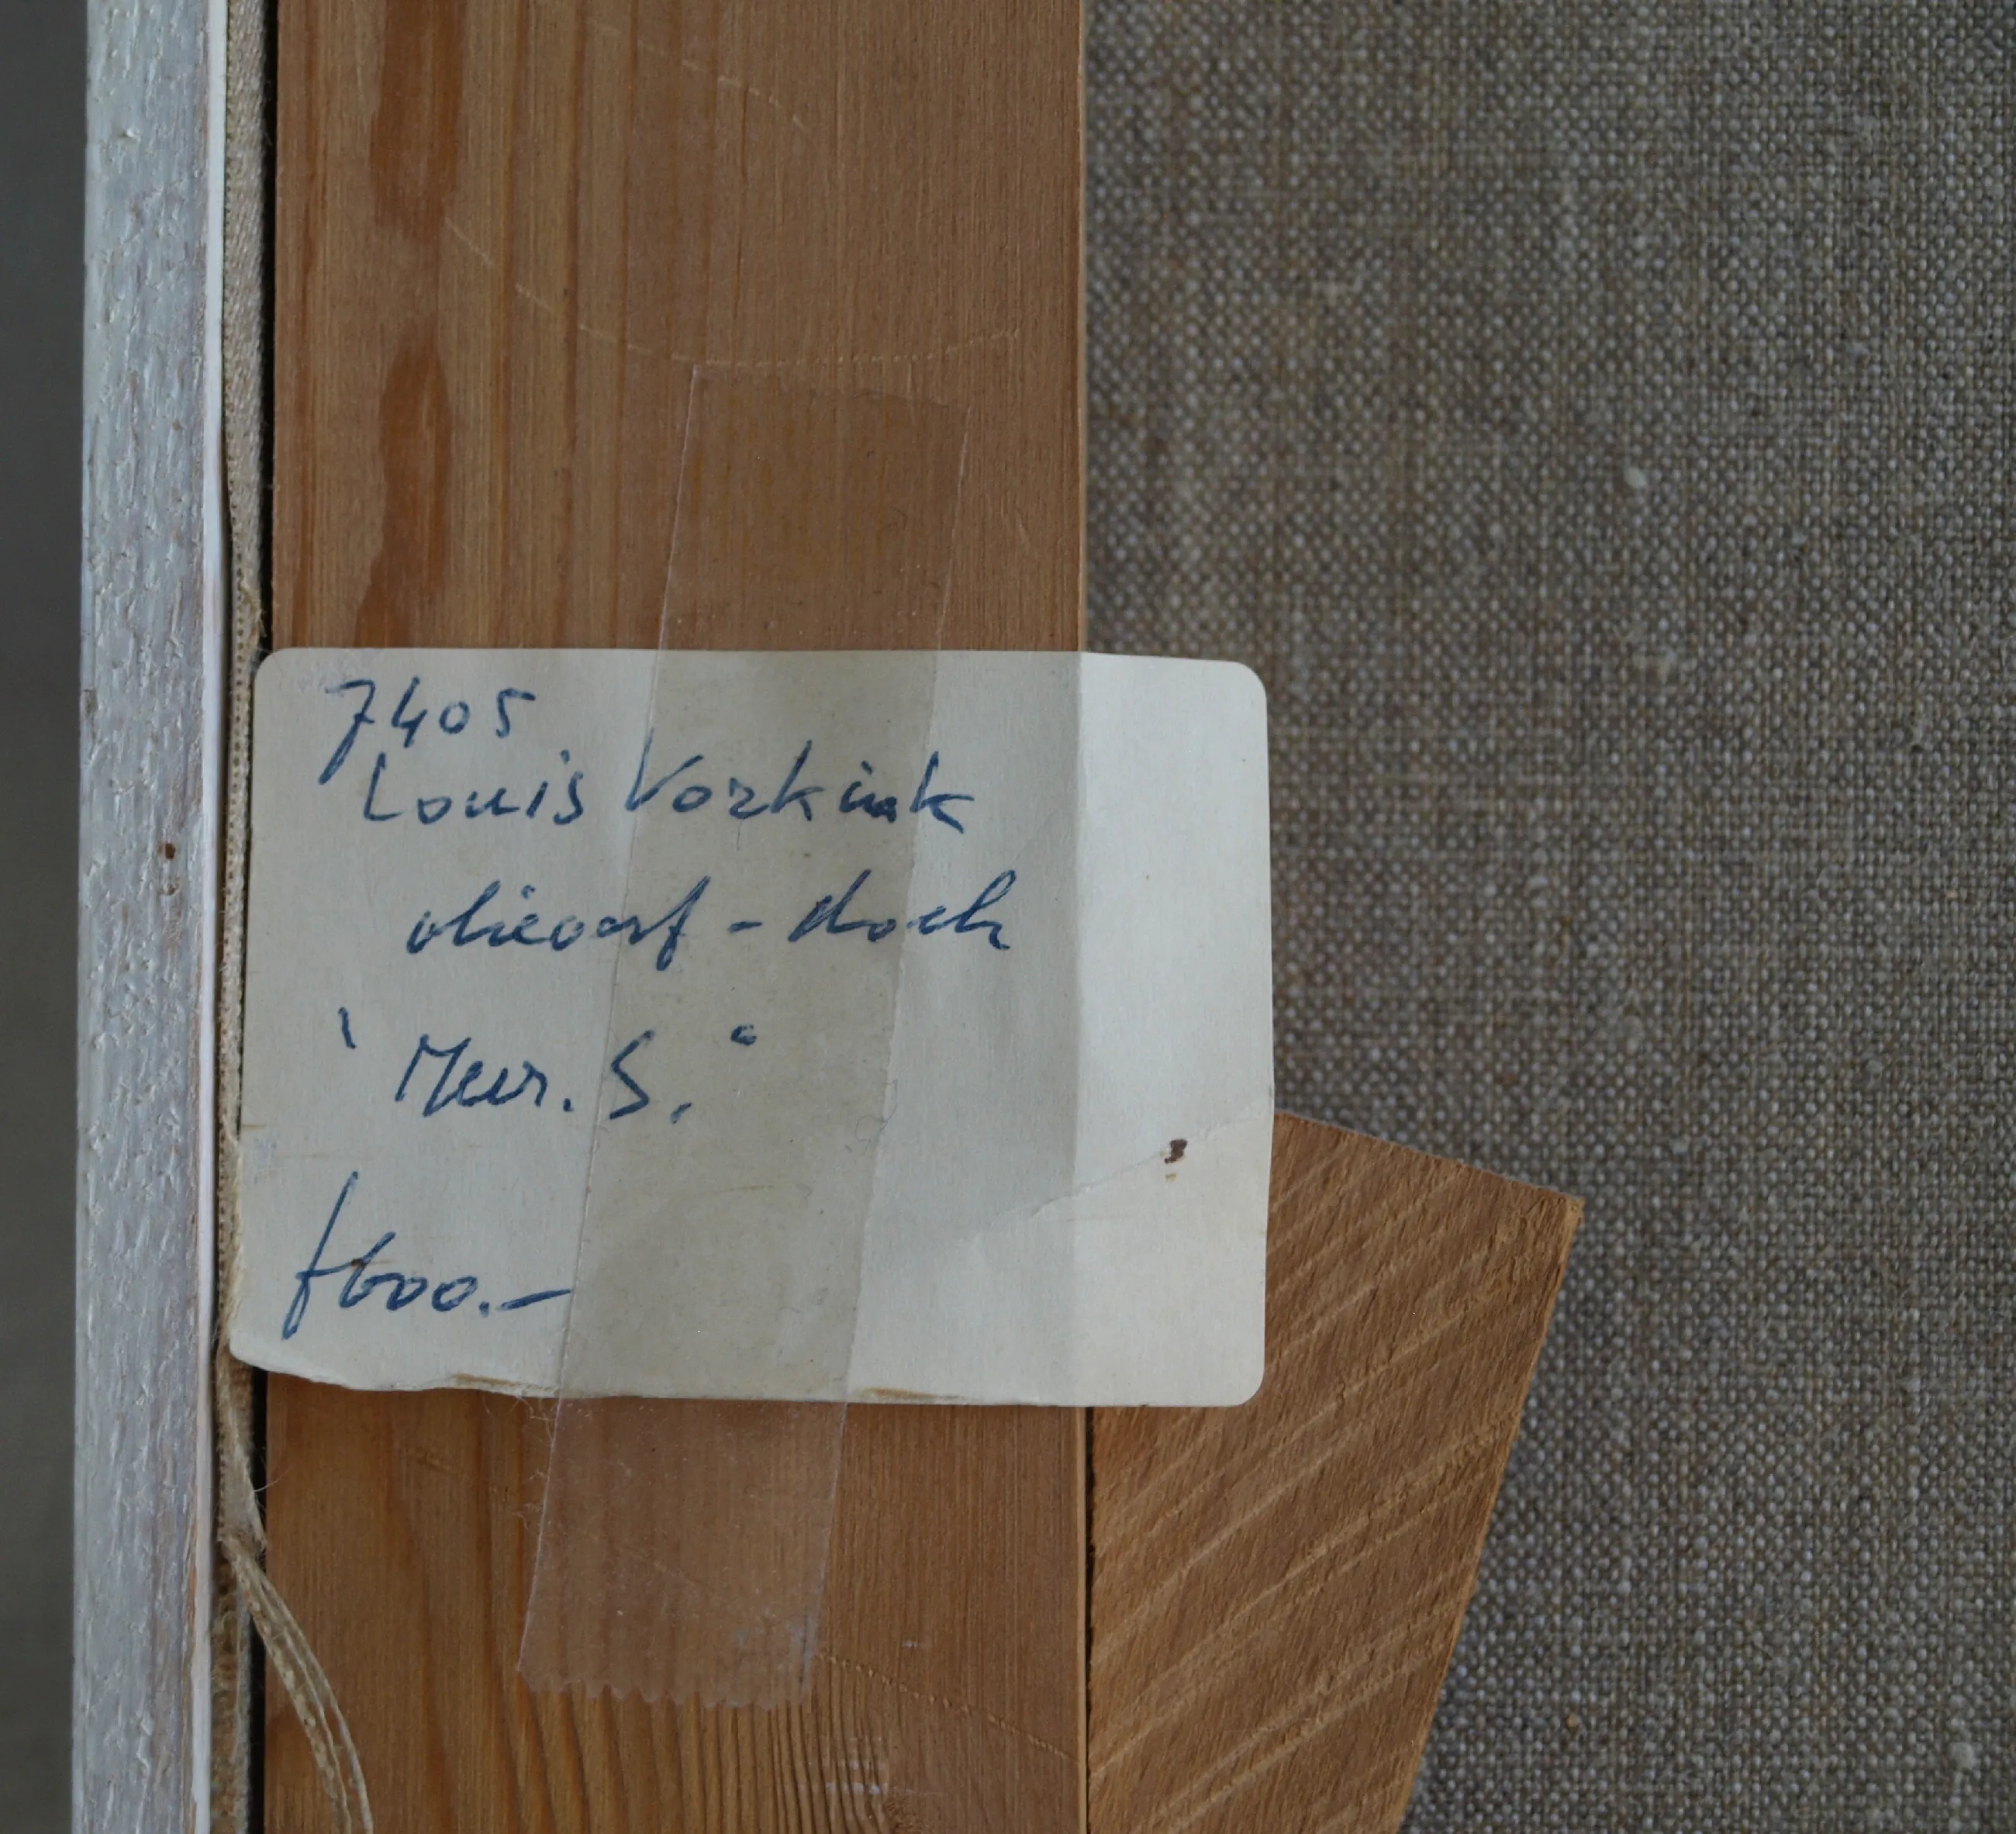 7405
Louis Vorkink
olieverf - doek
"Meur. S."
f600.-